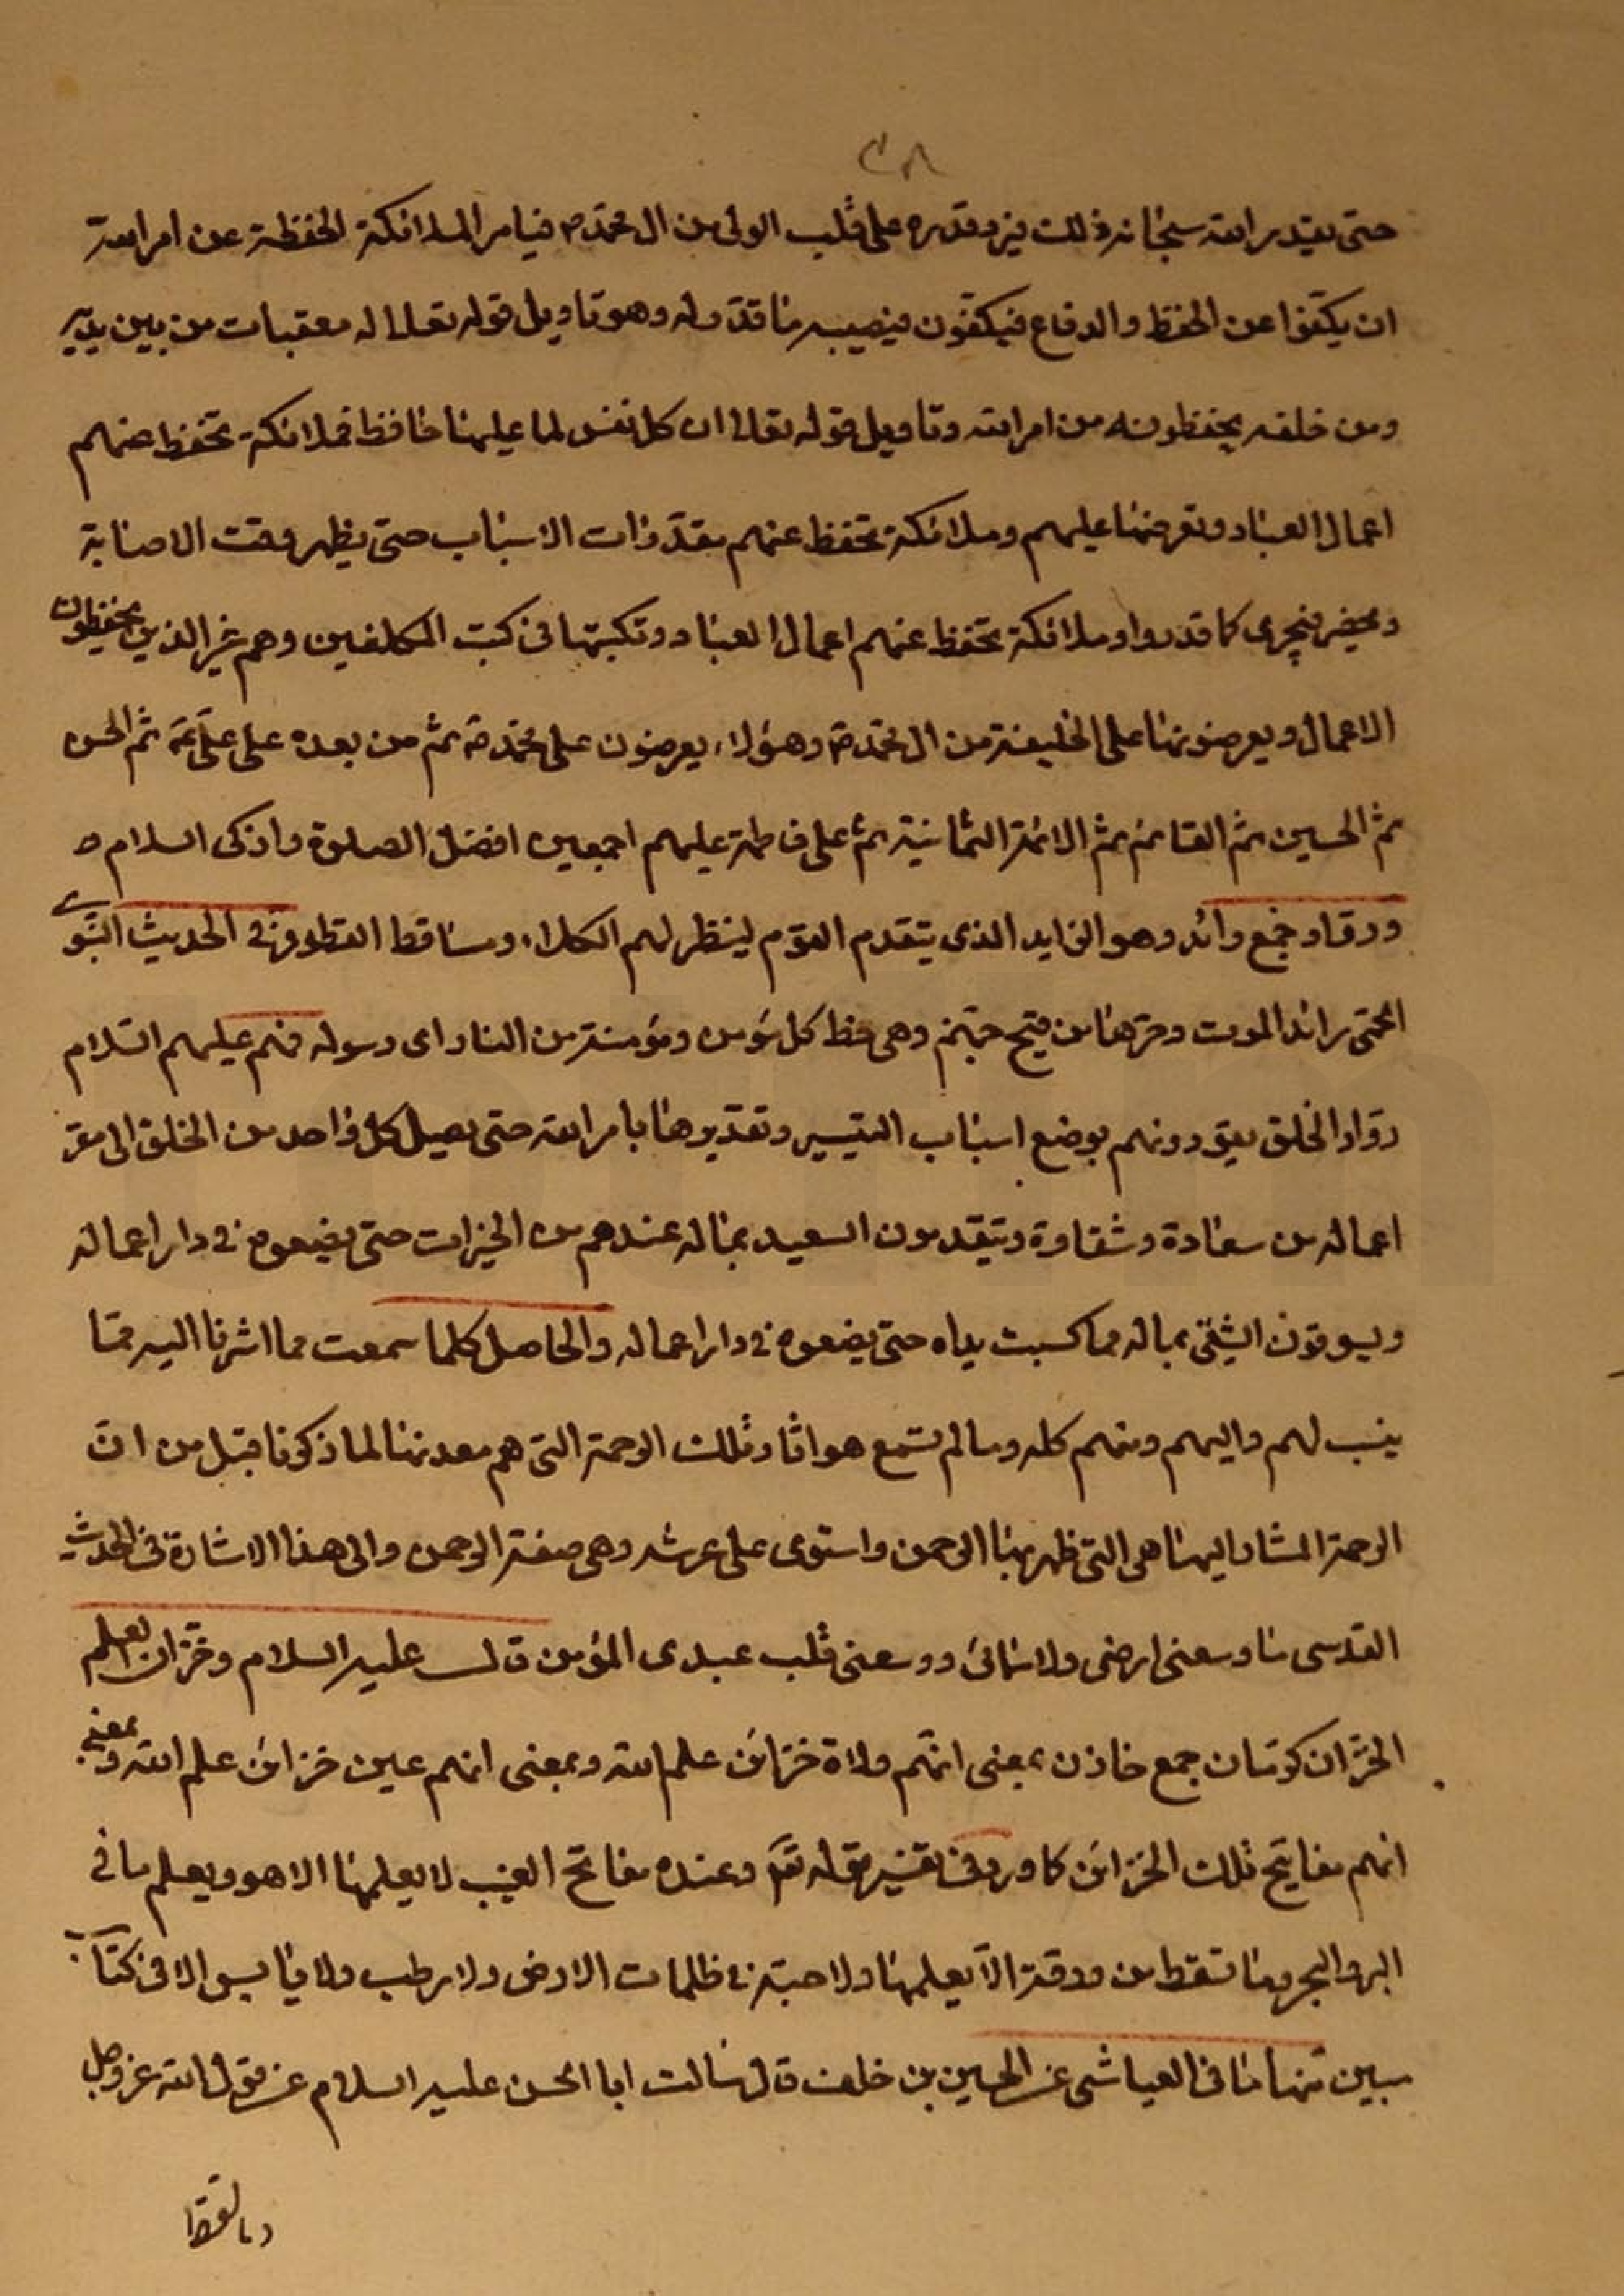 ٢٨
حتى يقدر الله سبحانه ذلك فيزد قدره على قلب الولى من ال محمد ص فيامر الملائكة الحفظة عن امر الله
ان يكفّوا عن الحفظ والدفاع فيكفّون فيصيبه ما قدّر له وهو تاويل قوله تعالى له معقبات من بين يديه
ومن خلفه يحفظونه من امر الله وتاويل قوله تعالى ان كل نفس لما عليها حافظ فملائكة تحفظ عنهم
اعمال العباد وتعرضها عليهم وملائكة تحفظ عنهم مقدّرات الاسباب حتى يظهر وقت الاصابة
ويحضر فيجرى كما قدروا وملائكة تحفظ عنهم اعمال العباد وتكتبها فى كتب المكلفين وهم غير الذين يحفظون
الاعمال ويعرضونها على الخليفة من ال محمد ص وهؤلاء يعرضون على محمد ص ثم من بعده على علىّ ع ثم الحسن
ثم الحسين ثم القائم ثم الائمة الثمانية ثم على فاطمة عليهم اجمعين افضل الصلوة وازكى السلام
ورواد جمع رائد وهو الرايد الذى يتقدم القوم لينظر لهم الكلاء ومساقط القطر وفى الحديث النبوى
الحمّى رائد الموت وحرّها من فيح جهنم وهى حظ كل مؤمن ومؤمنة من النار اى رسوله فهم عليهم السلام
روّاد الخلق يقودونهم بوضع اسباب التيسير وتقديرها بامر الله حتى يصل كل واحد من الخلق الى مقرّ
اعماله من سعادة وشقاوة ويتقدمون السعيد بماله عندهم من الخيرات حتى يضعوه فى دار اعماله
ويسوقون الشقى بماله مما كسبت يداه حتى يضعوه فى دار اعماله والحاصل كلما سمعت مما اشرنا اليه ممّا
ينسب لهم واليهم ومنهم كله وما لم تسمع هو اثار تلك الرحمة التى هم معدنها لما ذكرنا قبل من انّ
الرحمة المشار اليها هى التى ظهر بها الرحمن واستوى على عرشه وهى صفة الرحمن والى هذا الاشارة فى الحديث
القدسى ما وسعنى ارضى ولا سمائى ووسعنى قلب عبدى المؤمن قال عليه السلام وخزّان العلم
الخزّان كرمّان جمع خازن بمعنى انهم ولاة خزائن علم الله وبمعنى انهم عين خزائن علم الله وبمعنى
انهم مفاتيح تلك الخزائن كما ورد فى تفسير قوله تع وعنده مفاتح الغيب لا يعلمها الا هو ويعلم ما فى
البر والبحر وما تسقط من ورقة الاّ يعلمها ولا حبة فى ظلمات الارض ولا رطب ولا يابس الا فى كتاب
مبين فمنها ما فى العياشى عن الحسين بن خلف قال سالت ابا الحسن عليه السلام عن قول الله عز وجل
وما تسقط